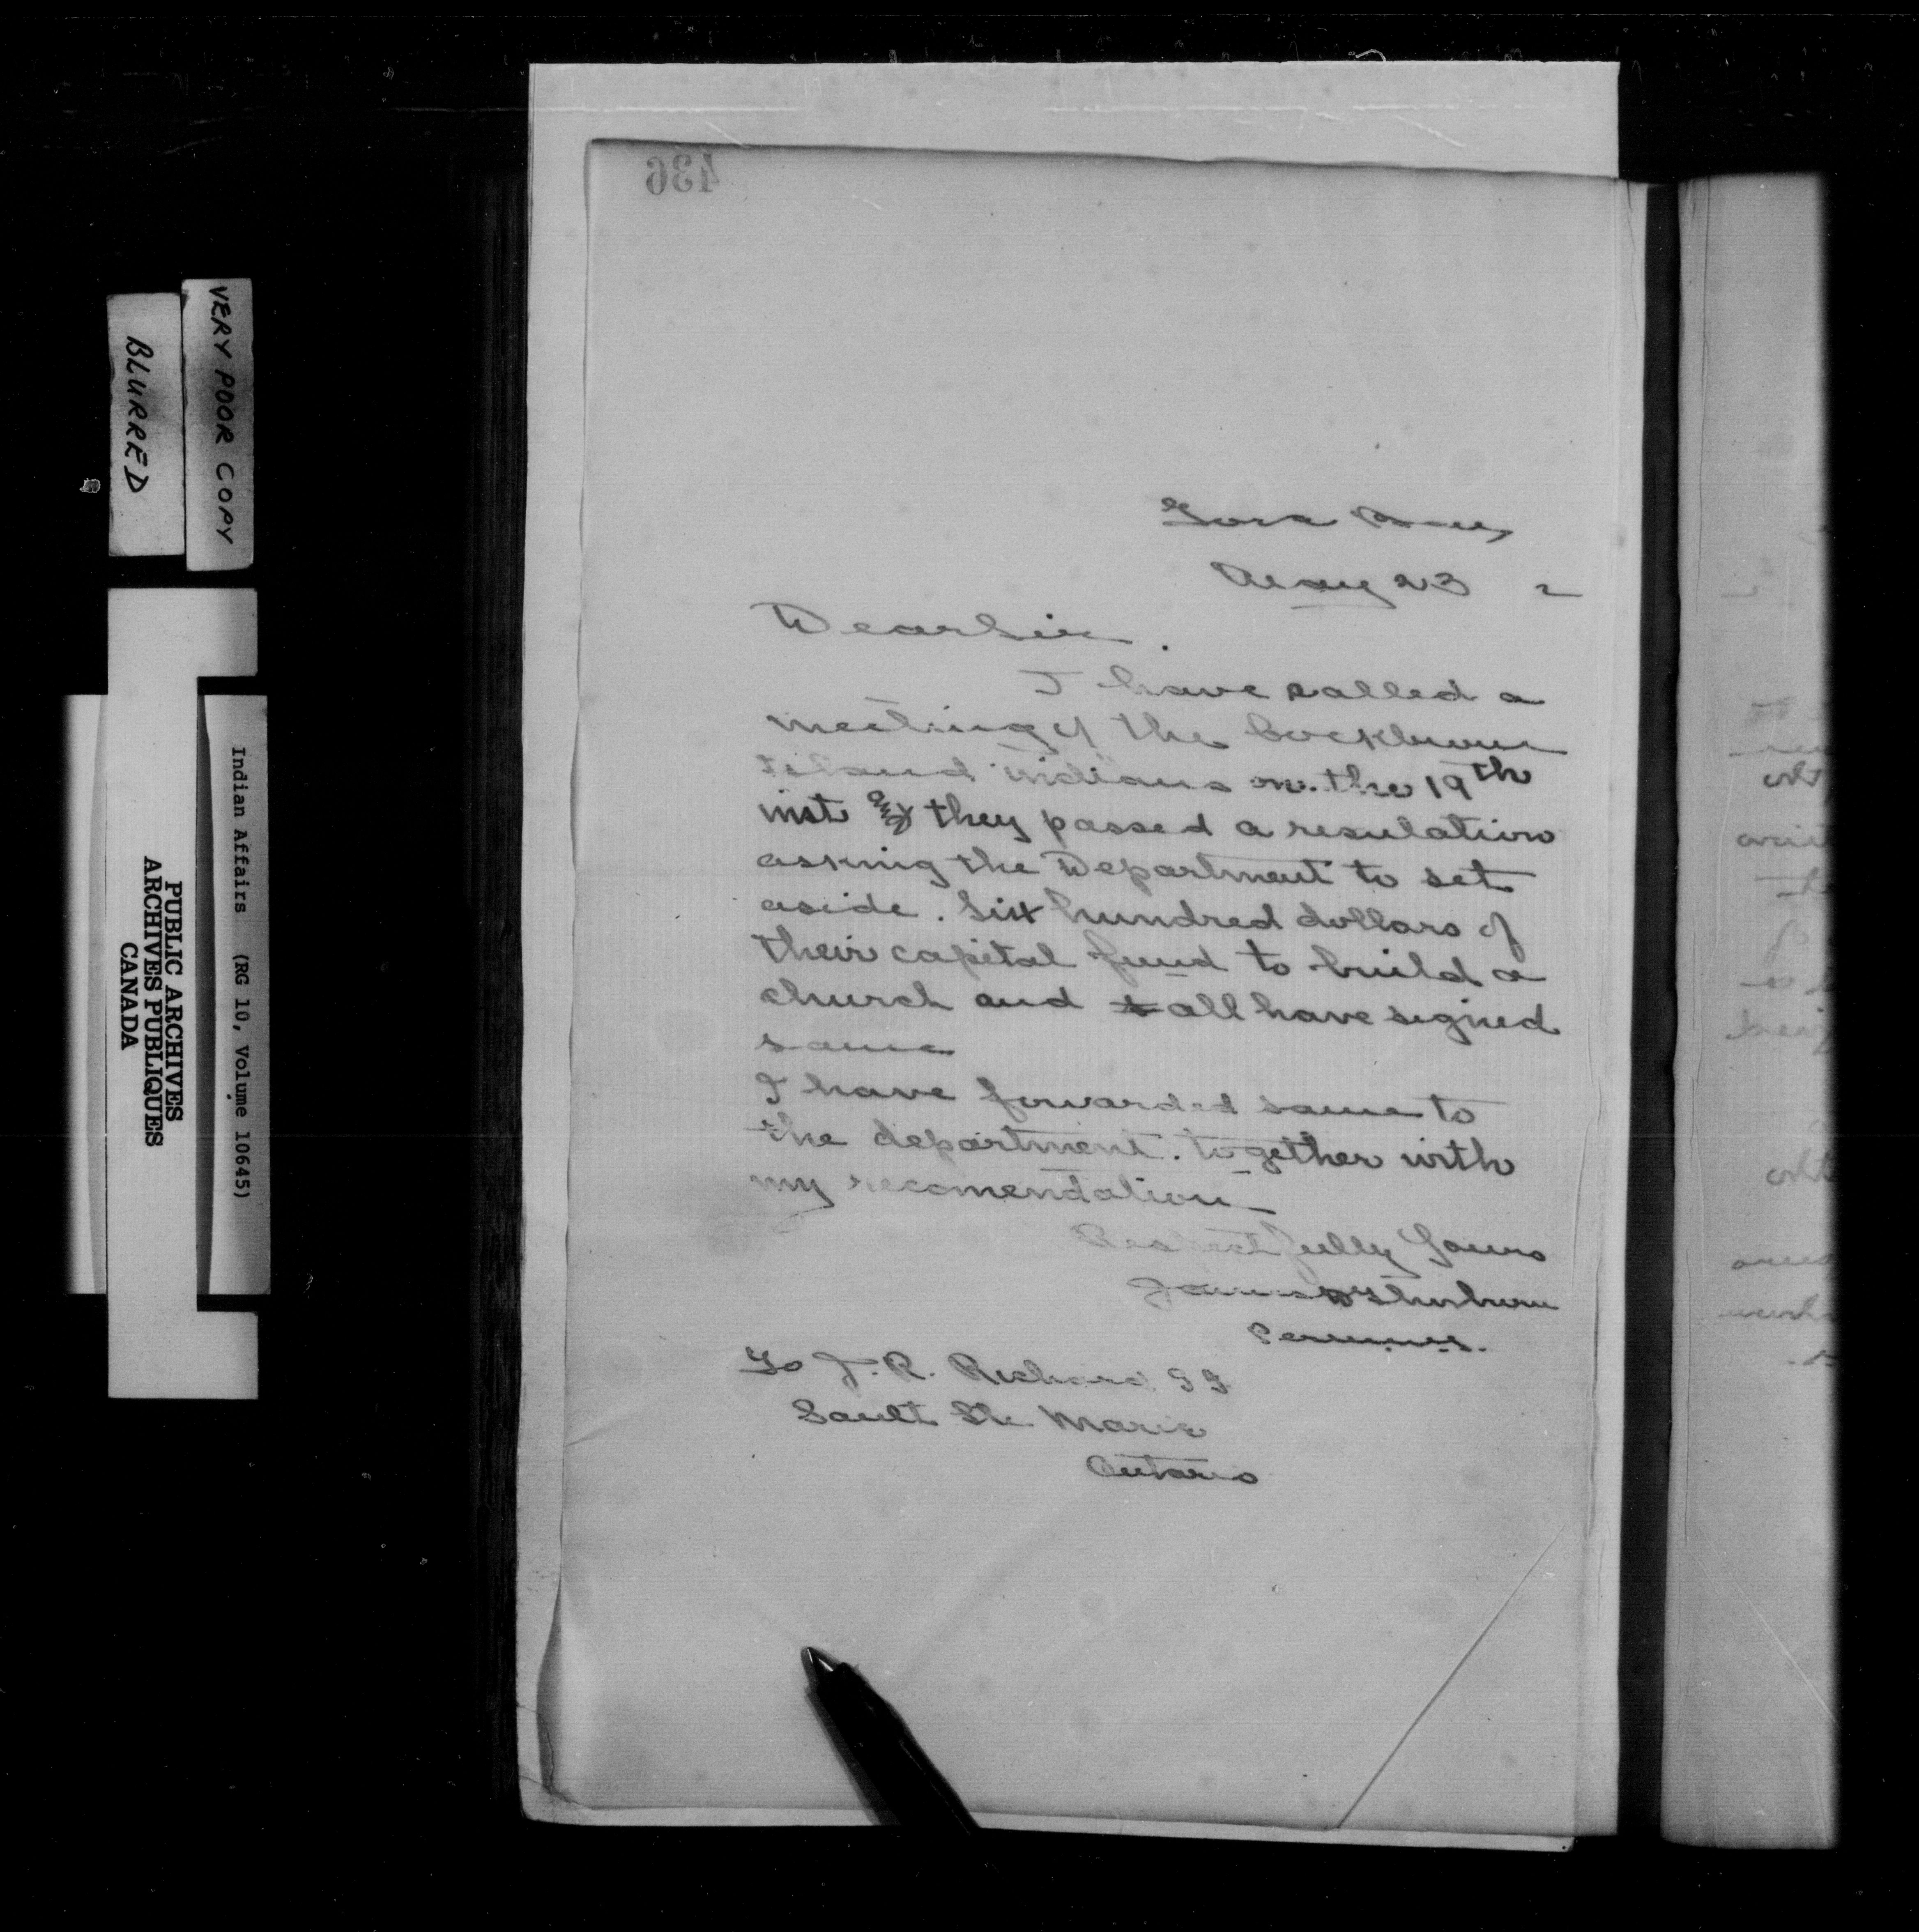 436
Gore Bay
May 23 2
Dear Sir.
I have called a
meeting of the Cockburn
Island indians on the 19th
inst and they passed a resulation
asking the Department to set
aside. Six hundred dollars of
their capital fund to build a
church and all have signed
same
I have forwarded same to
the department. together with
my recomendation
Respectfully Yours
James
To J. R. Richard
Sault Ste Marie
Ontario
VERY POOR COPY
BLURRED
Indian Affairs (RG 10, Volume 10645)
PUBLIC ARCHIVES
ARCHIVES PUBLIQUES
CANADA